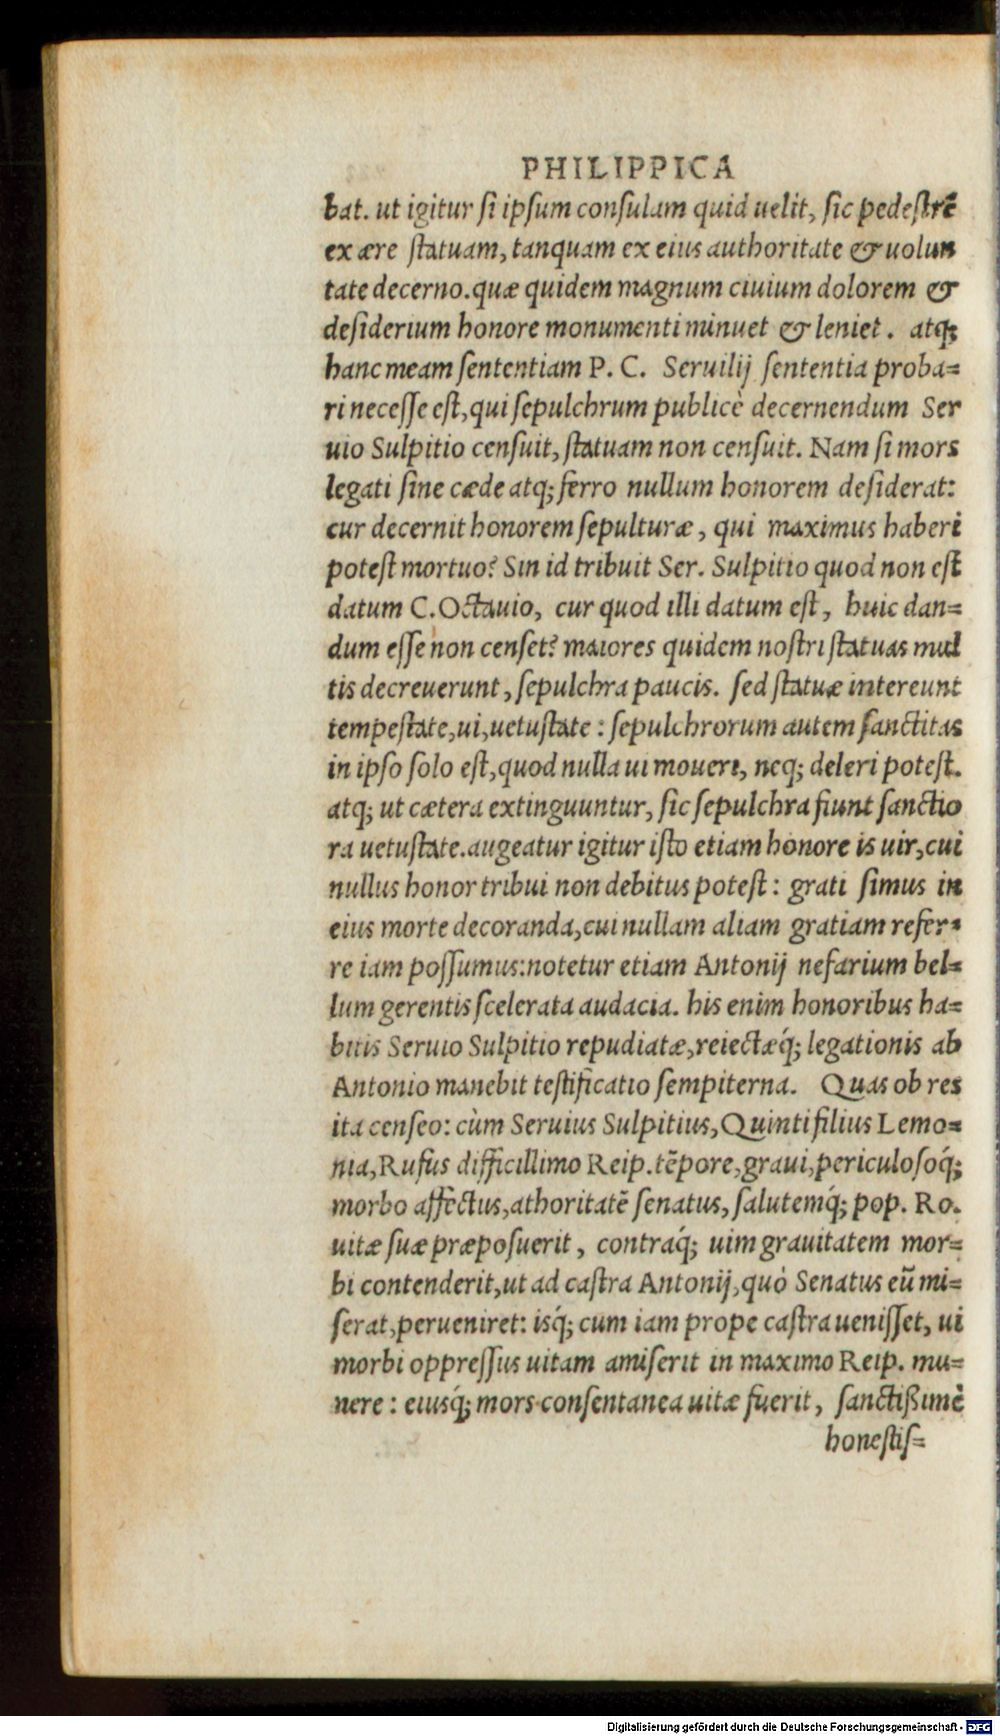 PHILIPPICA
bat. ut igitur si ipsum consulam quid uelit, sic pedestrē
ex ære statuam, tanquam ex eius authoritate & uolun
tate decerno. quæ quidem magnum ciuium dolorem &
desiderium honore monumenti minuet & leniet. atq;
hanc meam sententiam P. C. Seruilij sententia proba=
ri necesse est, qui sepulchrum publicè decernendum Ser
uio Sulpitio censuit, statuam non censuit. Nam si mors
legati sine cæde atq; ferro nullum honorem desiderat:
cur decernit honorem sepulturæ, qui maximus haberi
potest mortuo? Sin id tribuit Ser. Sulpitio quod non est
datum C. Octauio, cur quod illi datum est, huic dan=
dum esse non censet? maiores quidem nostri statuas mul
tis decreuerunt, sepulchra paucis. sed statuæ intereunt
tempestate, ui, uetustate: sepulchrorum autem sanctitas
in ipso solo est, quod nulla ui moueri, neq; deleri potest.
atq; ut cætera extinguuntur, sic sepulchra fiunt sanctio
ra uetustate. augeatur igitur isto etiam honore is uir, cui
nullus honor tribui non debitus potest: grati simus in
eius morte decoranda, cui nullam aliam gratiam refer=
re iam possumus: notetur etiam Antonij nefarium bel=
lum gerentis scelerata audacia. his enim honoribus ha=
bitis Seruio Sulpitio repudiatæ, reiectæq́; legationis ab
Antonio manebit testificatio sempiterna. Quas ob res
ita censeo: cùm Seruius Sulpitius, Quinti filius Lemo=
nia, Rufus difficillimo Reip. tēpore, graui, periculosoq́;
morbo affectus, athoritatē senatus, salutemq́; pop. Ro.
uitæ suæ præposuerit, contraq́; uim grauitatem mor=
bi contenderit, ut ad castra Antonij, quò Senatus eū mi=
serat, perueniret: isq́; cum iam prope castra uenisset, ui
morbi oppressus uitam amiserit in maximo Reip. mu=
nere: eiusq́; mors consentanea uitæ fuerit, sanctißimè
honestis=
Digitalisierung gefördert durch die Deutsche Forschungsgemeinschaft - DFG